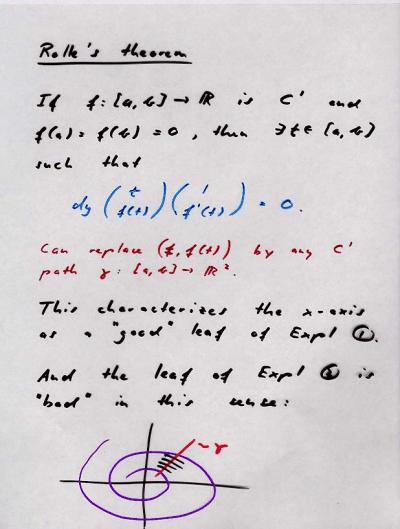 Rolle's theorem
If f: [a, b] → ℝ is C' and
f(a) = f(b) = 0, then ∃ t ∈ [a, b]
such that
dy (t f(t)) (1 f'(t)) = 0.
Can replace (t, f(t)) by any C'
path γ: [a, b] → ℝ².
This characterizes the x-axis
as a "good" leaf of Expl ①.
And the leaf of Expl ② is
"bad" in this sense:
~γ